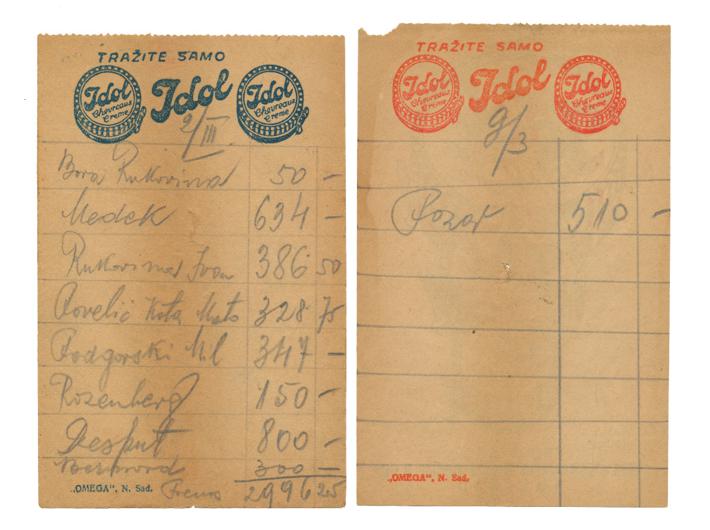 TRAŽITE SAMO
Idol Chevreaux Creme
Idol
Idol Chevreaux Creme
2/III
Bora Rukovina 50 –
Medek 634 –
Rukovina Ivan 386 50
Mato 328 75
Podgorski Mil 347 –
Rozenberg 150 –
Desput 800 –
300 –
„OMEGA“, N. Sad. Prenos 2996 25
TRAŽITE SAMO
Idol Chevreaux Creme
Idol
Idol Chevreaux Creme
9/3
Pozar 510 –
„OMEGA“, N. Sad.